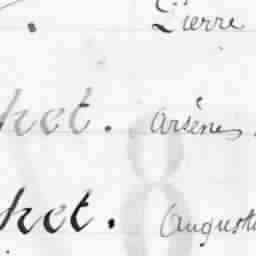 . Pierre
het. Arsène
het. August